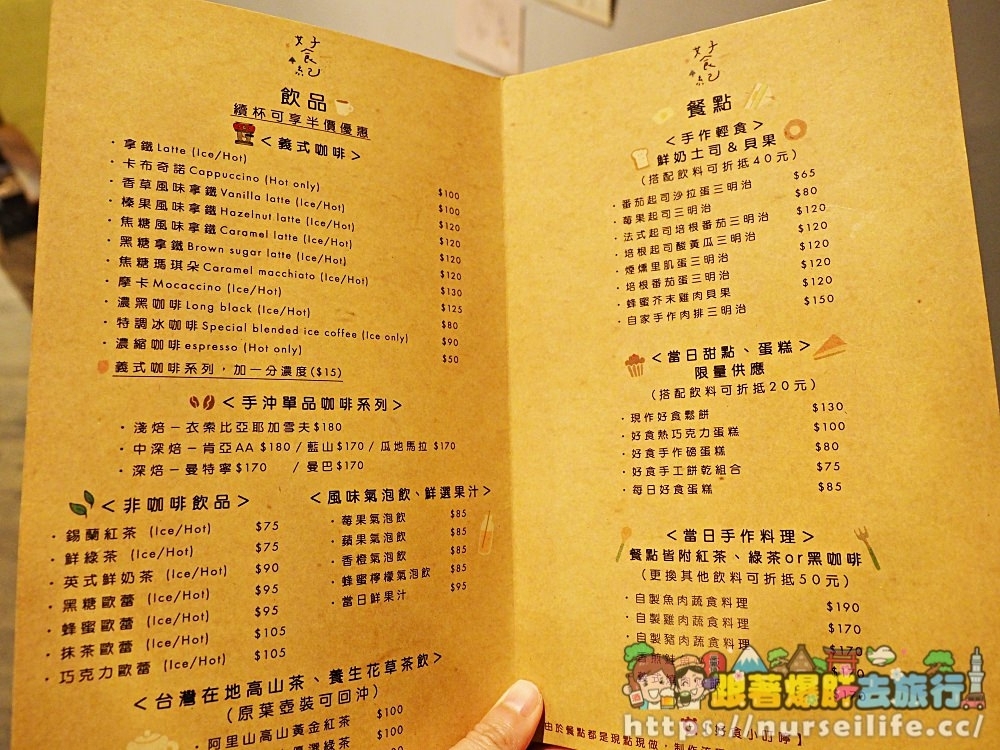 好食紀
飲品
續杯可享半價優惠
<義式咖啡>
・拿鐵Latte (Ice/Hot) $100
・卡布奇諾Cappuccino (Hot only) $100
・香草風味拿鐵Vanilla latte (Ice/Hot) $120
・榛果風味拿鐵Hazelnut latte (Ice/Hot) $120
・焦糖風味拿鐵Caramel latte (Ice/Hot) $120
・黑糖拿鐵Brown sugar latte (Ice/Hot) $120
・焦糖瑪琪朵Caramel macchiato (Ice/Hot) $130
・摩卡Mocaccino (Ice/Hot) $125
・濃黑咖啡Long black (Ice/Hot) $80
・特調冰咖啡Special blended ice coffee (Ice only) $90
・濃縮咖啡espresso (Hot only) $50
義式咖啡系列，加一分濃度($15)
<手沖單品咖啡系列>
・淺焙－衣索比亞耶加雪夫$180
・中深焙－肯亞AA $180/藍山$170/瓜地馬拉 $170
・深焙－曼特寧$170 /曼巴$170
<非咖啡飲品>
・錫蘭紅茶 (Ice/Hot) $75
・鮮綠茶 (Ice/Hot) $75
・英式鮮奶茶 (Ice/Hot) $90
・黑糖歐蕾 (Ice/Hot) $95
・蜂蜜歐蕾 (Ice/Hot) $95
・抹茶歐蕾 (Ice/Hot) $105
・巧克力歐蕾 (Ice/Hot) $105
<風味氣泡飲、鮮選果汁>
・莓果氣泡飲 $85
・蘋果氣泡飲 $85
・香橙氣泡飲 $85
・蜂蜜檸檬氣泡飲 $85
・當日鮮果汁 $95
<台灣在地高山茶、養生花草茶飲>
(原葉壺裝可回沖)
・阿里山高山黃金紅茶 $100
$100
好食紀
餐點
<手作輕食>
鮮奶土司&貝果
(搭配飲料可折抵40元)
・番茄起司沙拉蛋三明治 $65
・莓果起司三明治 $80
・法式起司培根番茄三明治 $120
・培根起司酸黃瓜三明治 $120
・煙燻里肌蛋三明治 $120
・培根番茄蛋三明治 $120
・蜂蜜芥末雞肉貝果 $120
・自家手作肉排三明治 $150
<當日甜點、蛋糕>
限量供應
(搭配飲料可折抵20元)
・現作好食鬆餅 $130
・好食熱巧克力蛋糕 $100
・好食手作磅蛋糕 $80
・好食手工餅乾組合 $75
・每日好食蛋糕 $85
<當日手作料理>
餐點皆附紅茶、綠茶or黑咖啡
(更換其他飲料可折抵50元)
・自製魚肉蔬食料理 $190
・自製雞肉蔬食料理 $170
・自製豬肉蔬食料理 $170
好食小叮嚀】
由於餐點都是現點現做，製作
跟著爆肝去旅行
https://nurseilife.cc/